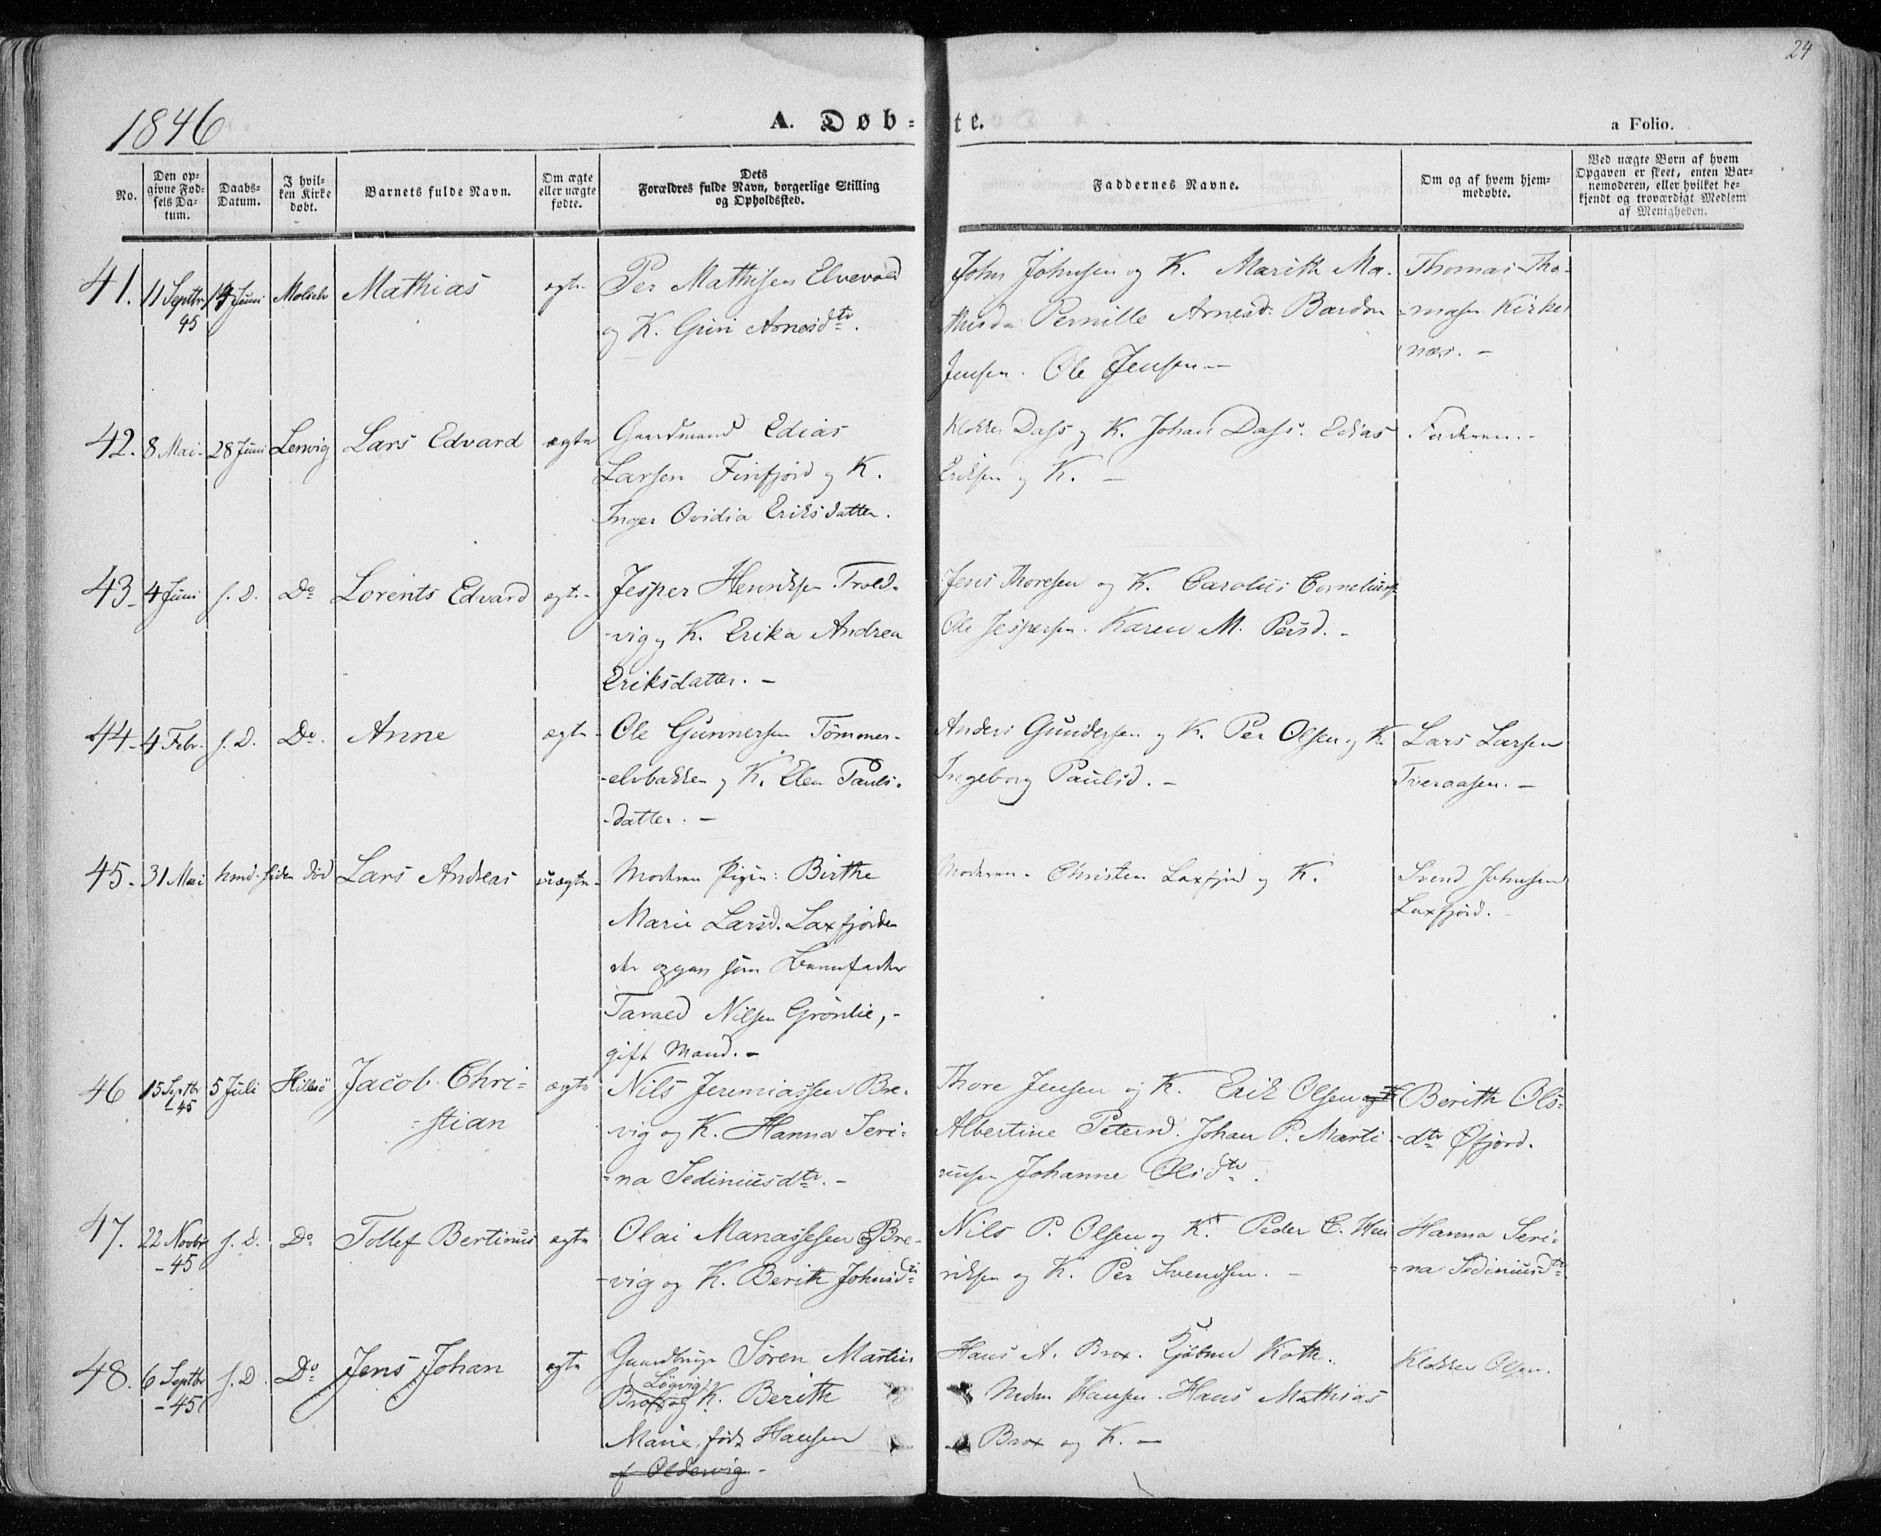 24
1846
A. Døb-
te.
a Folio.
No.
Den op-
givne Fød-
sels Da-
tum.
Daabs-
Datum.
I hvil-
ken Kirke
døbt.
Barnets fulde Navn.
Om ægte
eller uægte
fødte.
Dets
Forældres fulde Navn, borgerlige Stilling
og Opholdsted.
Faddernes Navne.
Om og af hvem hjem-
medøbte.
Ved uægte Børn af hvem
Opgaven er skeet, enten Bar-
nemoderen, eller hvilket be-
kjendt og troværdigt Medlem
af Menigheden.
41.
11 Septbr
45
14 Juni
Mathias
ægte
Per Mathisen Elvevold
og K. Guri Arnesdtr.
John Johnsen og K. Marith Ma-
thisd. Pernille Arnesd. Bardon
Jensen. Ole Jensen.—
Thomas Tho-
masen Kirkes
nær. —
42.
8 Mai
28 Juni
Lenvig
Lars Edvard
ægte
Gaardmand Edias
Larsen Finfjord og K.
Inger Ovidia Eriksdatter.
Klokker Dass og K. Johan Dass. Edias
Eriksen og K. —
Faderen.—
43
4 Juni
s. D.
Do
Lorents Edvard
ægte
Jesper Henriksen Trold-
-vig og K. Erika Andrea
Eriksdatter. —
Jens Thoresen og K. Carolus Corneliuss.
Ole Jespersen. Karen M. Persd. —
44
4 Febr.
s. D.
Do.
Anne
ægte
Ole Gunnersen Tømmer-
-elvbakken og K. Elen Pauls-
-datter. —
Anders Gundersen og K. Per Olsen og K.
Ingeborg Paulsd. —
Lars Larsen
Tveraasen. —
45.
31 Mai
hmd. siden død
Lars Andreas
uægte
Moderen Pigen: Birthe
Marie Larsd. Laxfjorden
der opgav som Barnefader
Tarald Nilsen Grønlie,-
gift Mand. —
Moderen. Christen Laxfjord og K.
Svend Johnsen
Laxfjord.
46
15 Septbr
-45
5 Juli
Hillesø
Jacob Chri-
-stian
ægte
Nils Jeremiassen Bre-
vig og K. Hanna Seri-
-na Sediniusdtr. —
Thore Jensen og K. Erik Olsen og K
Albertine Petersd. Johan P. Marti-
nusen Johanne Olsdtr.
Berith Ols-
-dtr Øfjord.
47.
22 Novbr
-45
s. D.
Do
Tollef Bertinus
ægte
Olai Manassesen Bre-
-vig og K. Berith Johnsdtr
Nils P. Olsen og K. Peder C. Hen
riksen og K. Per Svendsen. —
Hanna Seri-
-na Sediniusdtr
48.
6 Septbr
-45
s. D.
Do
Jens Johan
ægte
Gaardbruger Søren Martin
Løgvig
Brox og K. Berith
Marie, født Hansen
af Oldervig. —
Hans A. Brox. Kjøbm Koth.
Hansen. Hans Mathias
Brox og K. —
Klokker Olsen.